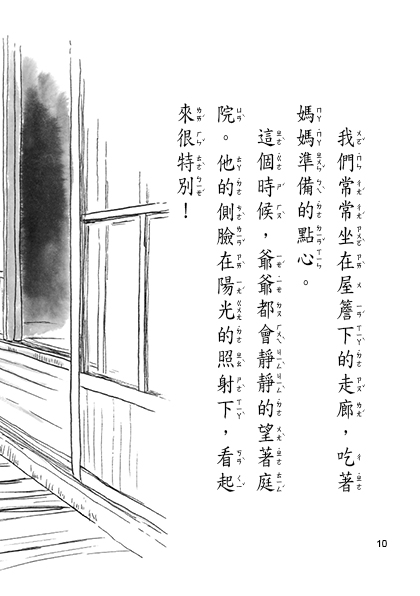 我們常常坐在屋簷下的走廊，吃著
媽媽準備的點心。
這個時候，爺爺都會靜靜的望著庭
院。他的側臉在陽光的照射下，看起
來很特別！
10